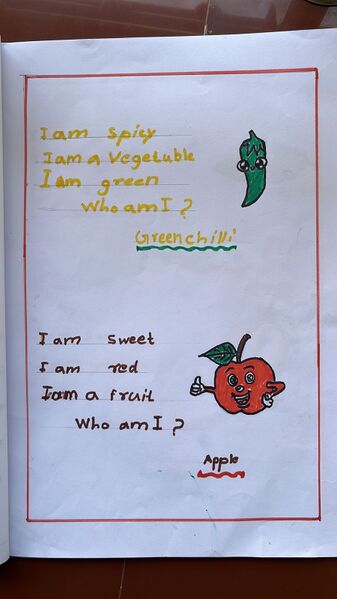 I am spicy
I am a Vegetable
I am green
Who am I ?
Green chilli
I am sweet
I am red
I am a fruit
Who am I ?
Apple